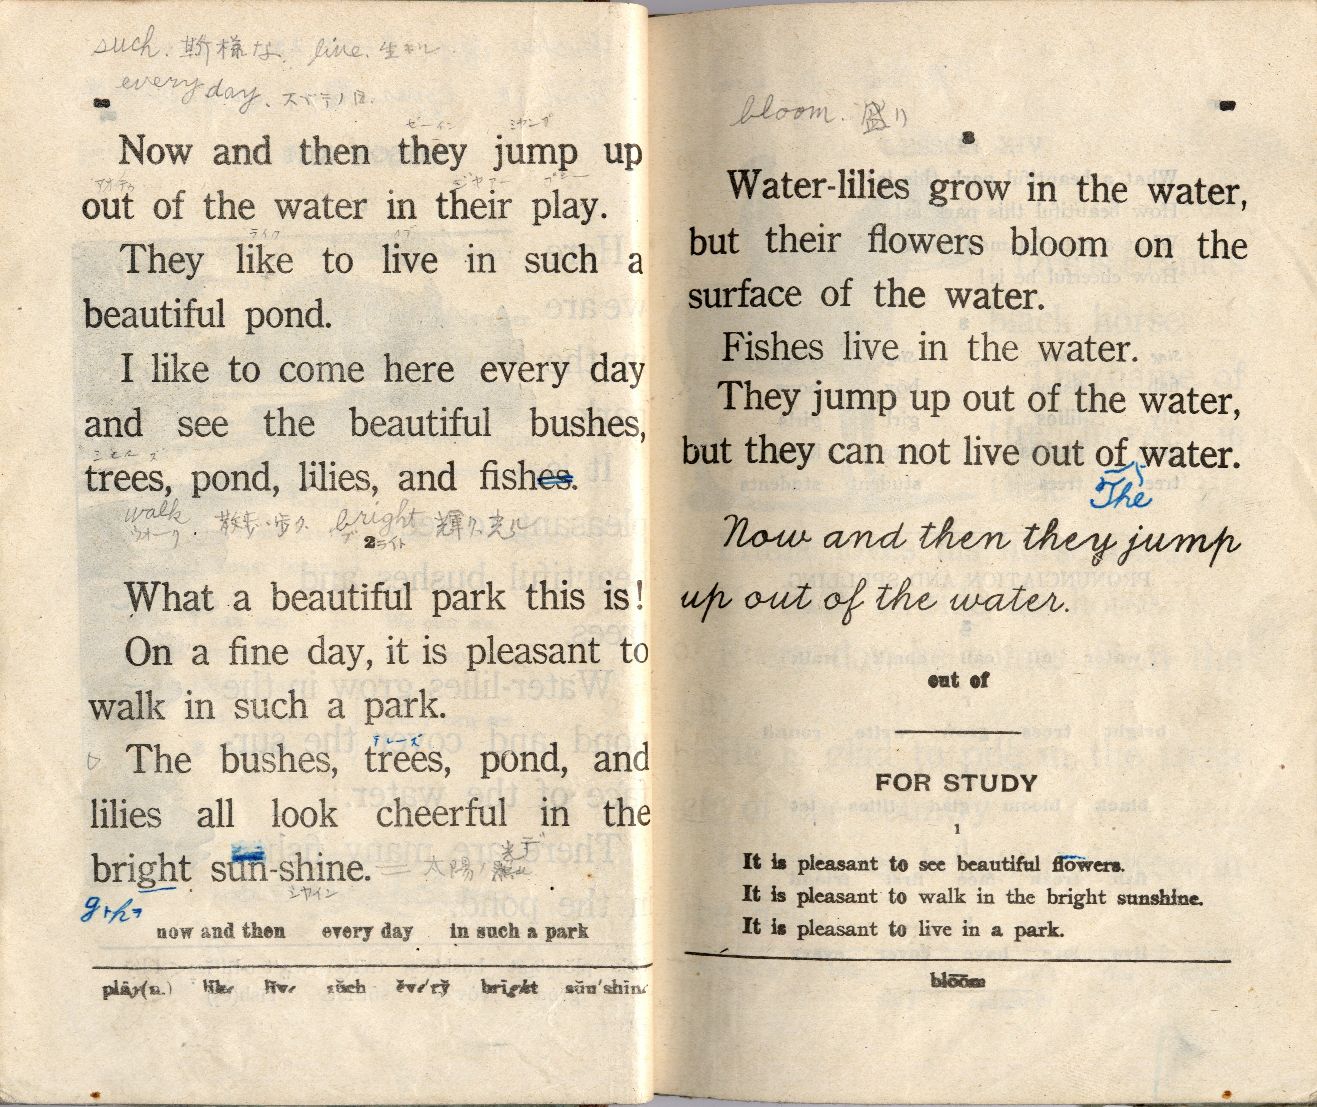 such. 斯様な. live. 生キル
every day. スベテノ日.
Now and then they jump up
out of the water in their play.
They like to live in such a
beautiful pond.
I like to come here every day
and see the beautiful bushes,
trees, pond, lilies, and fishes.
walk 散歩・歩ク bright 輝ク、光ル
ウオーク ブライト
2
What a beautiful park this is!
On a fine day, it is pleasant to
walk in such a park.
トレーズ
The bushes, trees, pond, and
lilies all look cheerful in the
bright sun-shine. 太陽ノ
シヤイン
now and then every day in such a park
plāy(n.) līke lĭve sŭch ĕv'rў brīght sŭn'shīne
bloom. 盛リ
3
Water-lilies grow in the water,
but their flowers bloom on the
surface of the water.
Fishes live in the water.
They jump up out of the water,
but they can not live out of water.
The
Now and then they jump
up out of the water.
out of
FOR STUDY
1
It is pleasant to see beautiful flowers.
It is pleasant to walk in the bright sunshine.
It is pleasant to live in a park.
blōōm